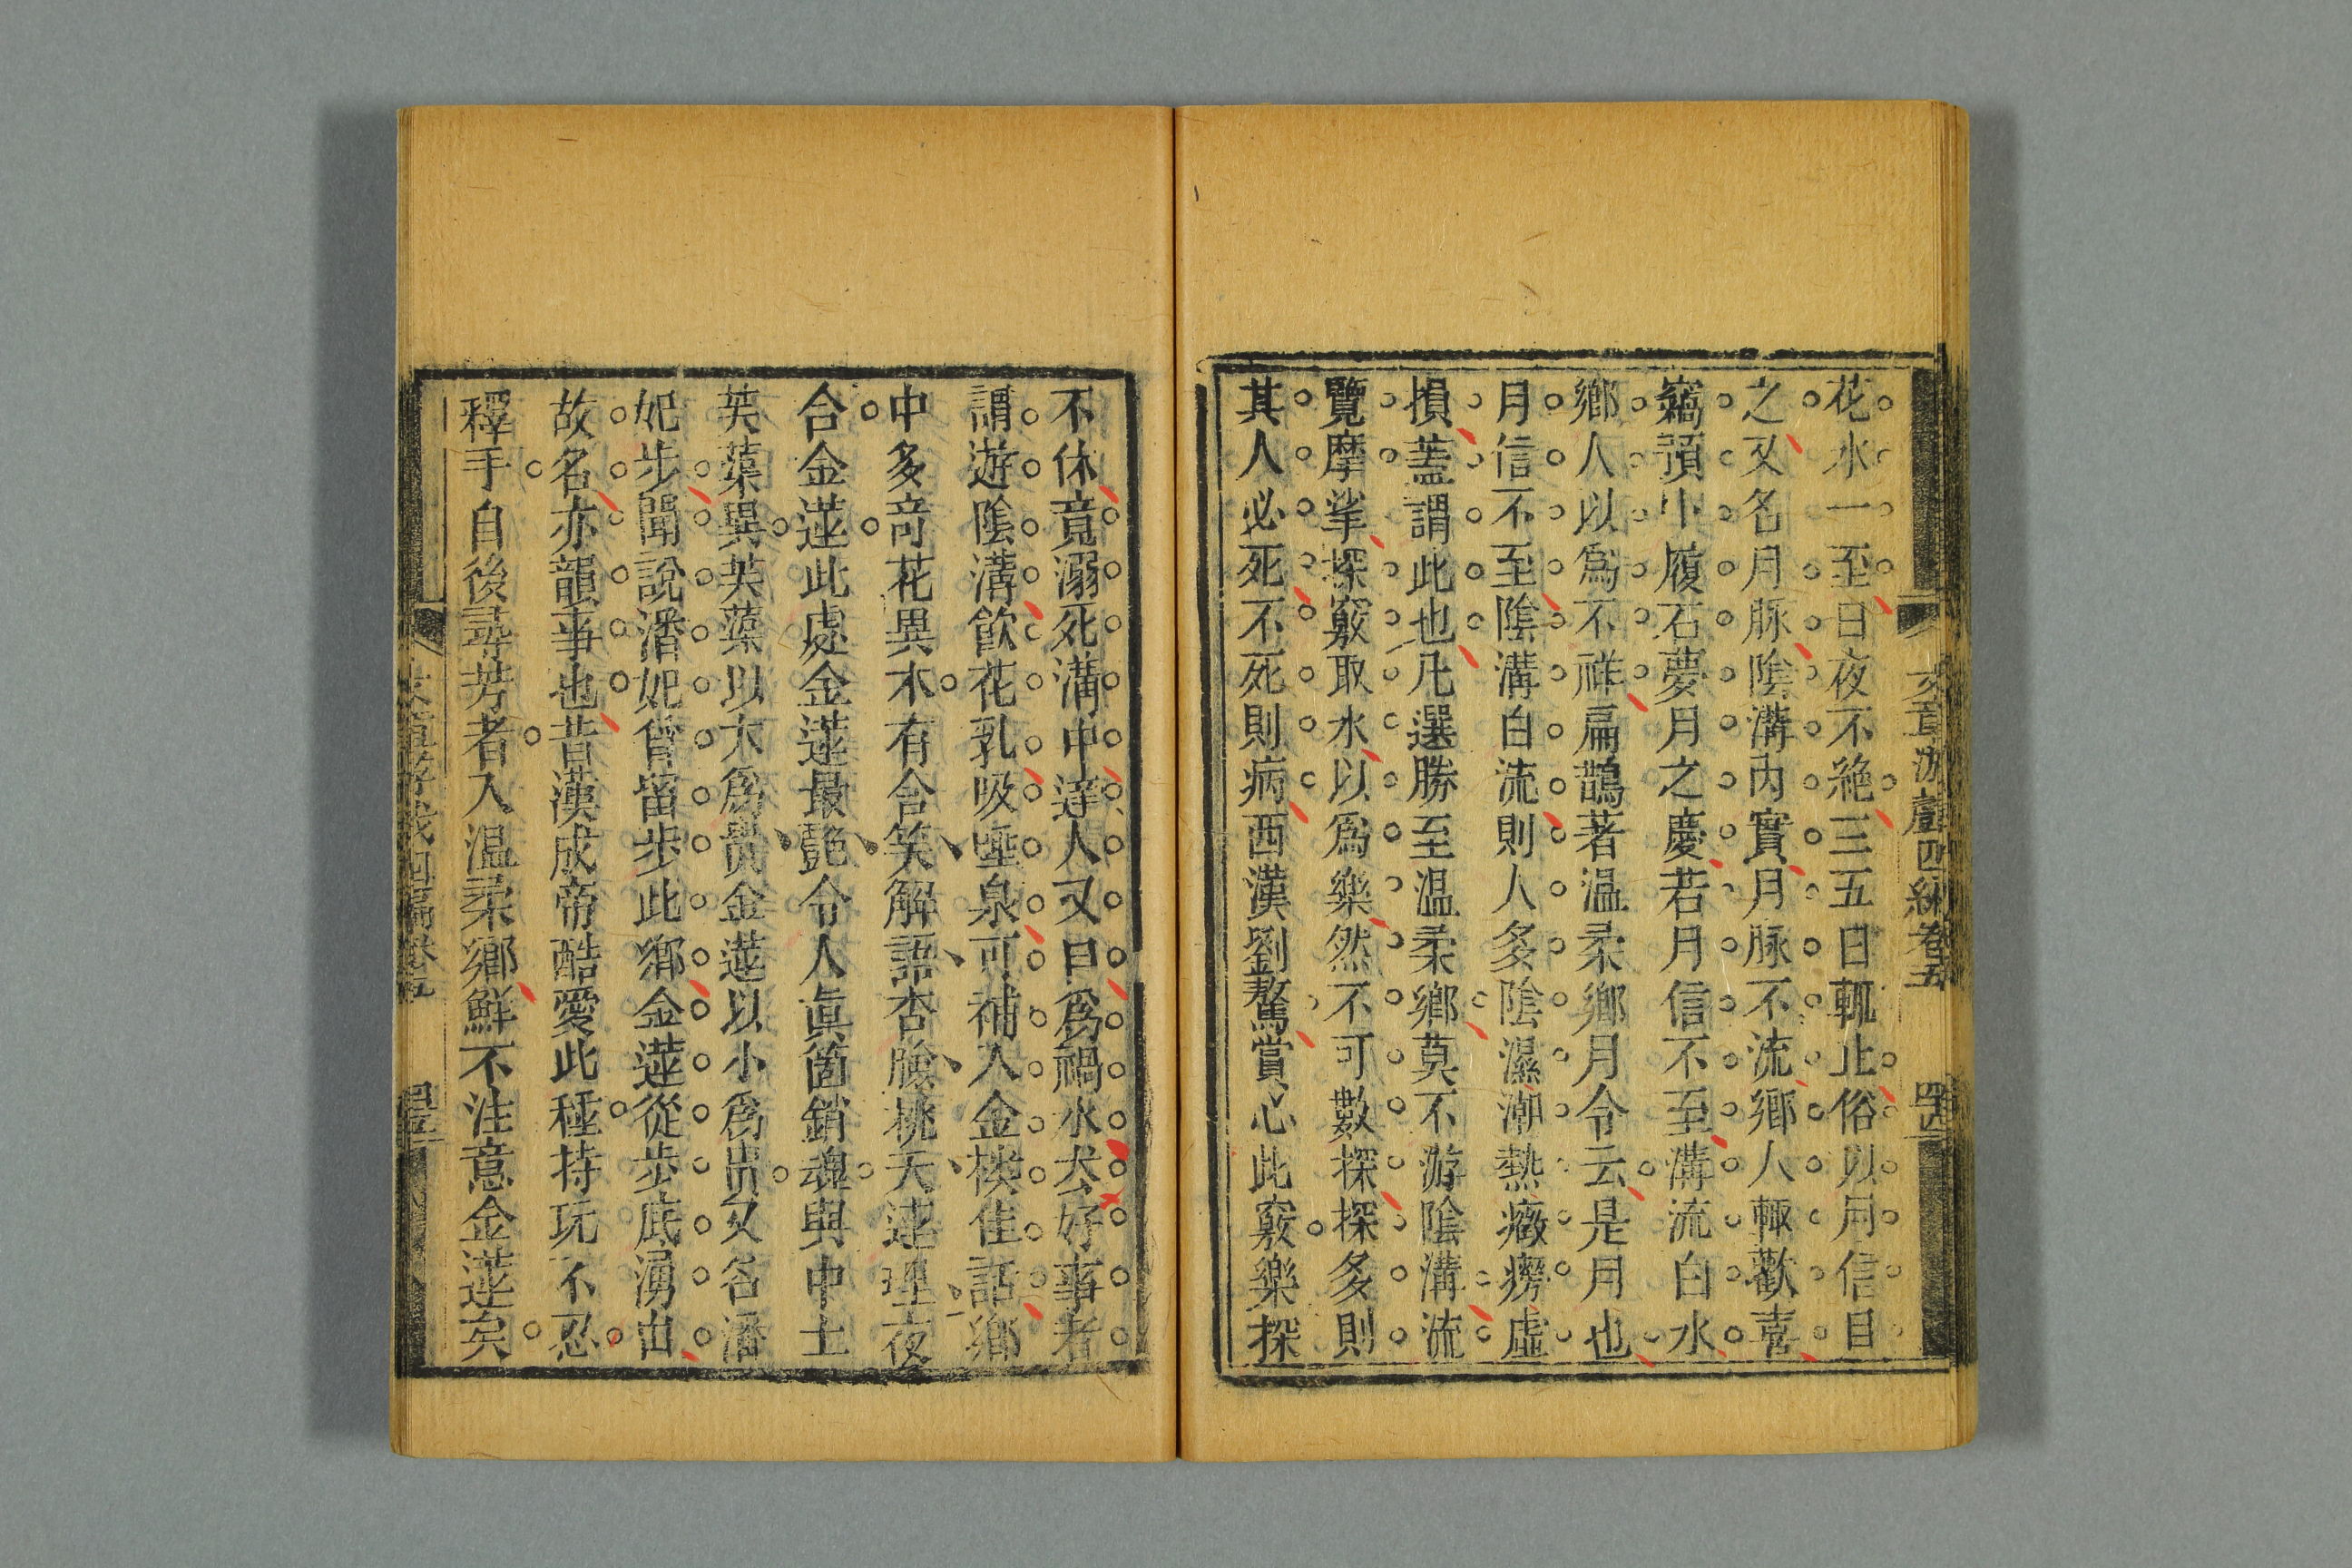 文章游戲四編卷五
四十四
花水一至日夜不絕三五日輒止俗以月信目
之又名月脉陰溝內實月脉不流鄉人輙歡喜
竊預小履石夢月之慶若月信不至溝流白水
鄉人以爲不祥扁鵲著温柔鄉月令云是月也
月信不至陰溝白流則人多陰濕潮熱癥癆虛
損蓋謂此也凡選勝至温柔鄉莫不游陰溝流
覽摩挲探竅取水以爲樂然不可數探探多則
其人必死不死則病西漢劉驁賞心此竅樂探
不休竟溺死溝中達人又曰爲禍水尖好事者
謂遊陰溝飲花乳吸唾泉可補入金樓佳話鄉
中多奇花異木有含笑解語杏臉桃夭連理夜
合金蓮此處金蓮最艷令人眞箇銷魂與中土
芙蕖異芙蕖以大爲貴金蓮以小爲貴又名潘
妃步聞說潘妃曾留步此鄉金蓮從步底湧出
故名亦韻事也昔漢成帝酷愛此種持玩不忍
釋手自後尋芳者入温柔鄉鮮不注意金蓮矣
文章游戲四編卷五